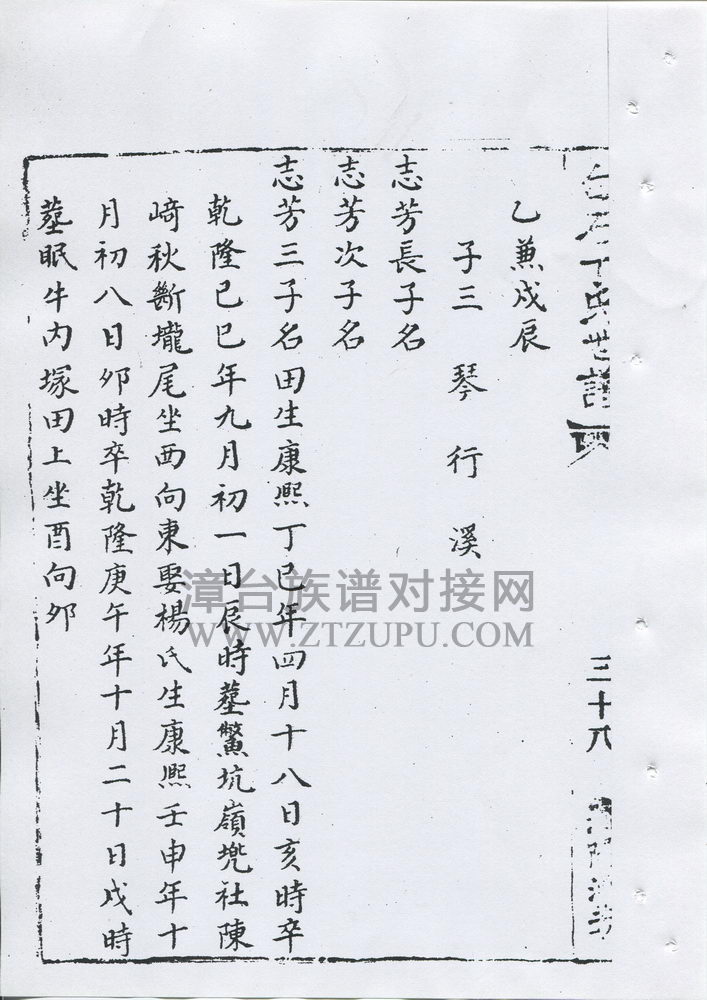 白石丁氏世譜
三十八
乙兼戍辰
子三 琴 行 溪
志芳長子名
志芳次子名
志芳三子名田生康熙丁巳年四月十八日亥時卒
乾隆己巳年九月初一日辰時墓鱉坑嶺兠社陳
﨑秋斷壠尾坐西向東娶楊氏生康熙壬申年十
月初八日夘時卒乾隆庚午年十月二十日戍時
墓眠牛内塚田上坐酉向夘
漳台族谱对接网
WWW.ZTZUPU.COM